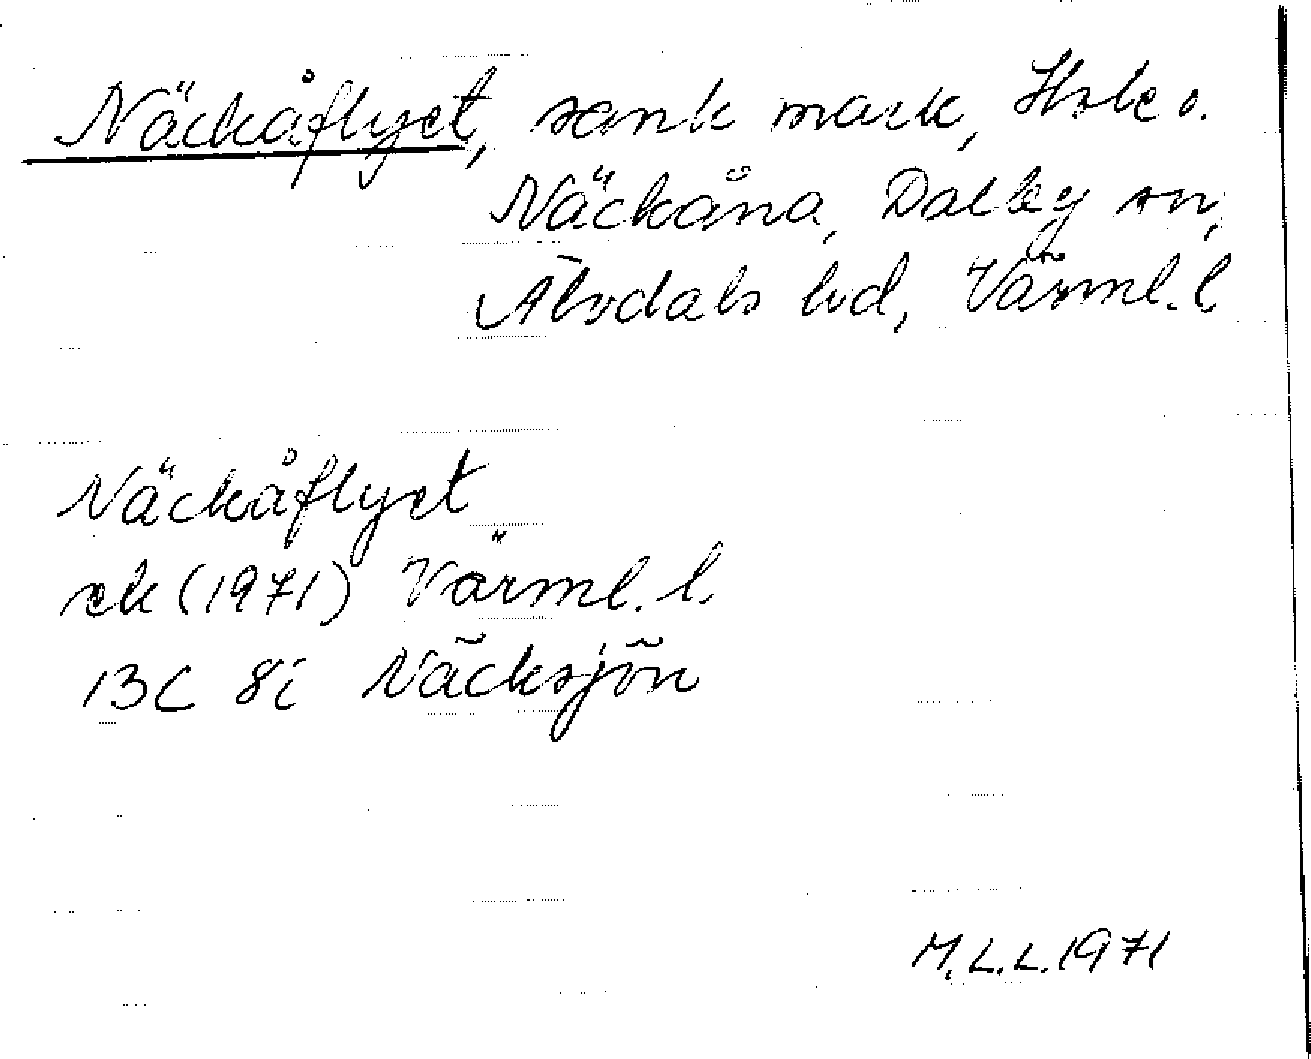 Näckåflyet, sank mark, Hske o.
Näckåna, Dalby sn,
Älvdals hd, Värml. l
Näckåflyet
ek (1971) Värml. l.
13C 8i Näcksjön
M.L.L. 1971